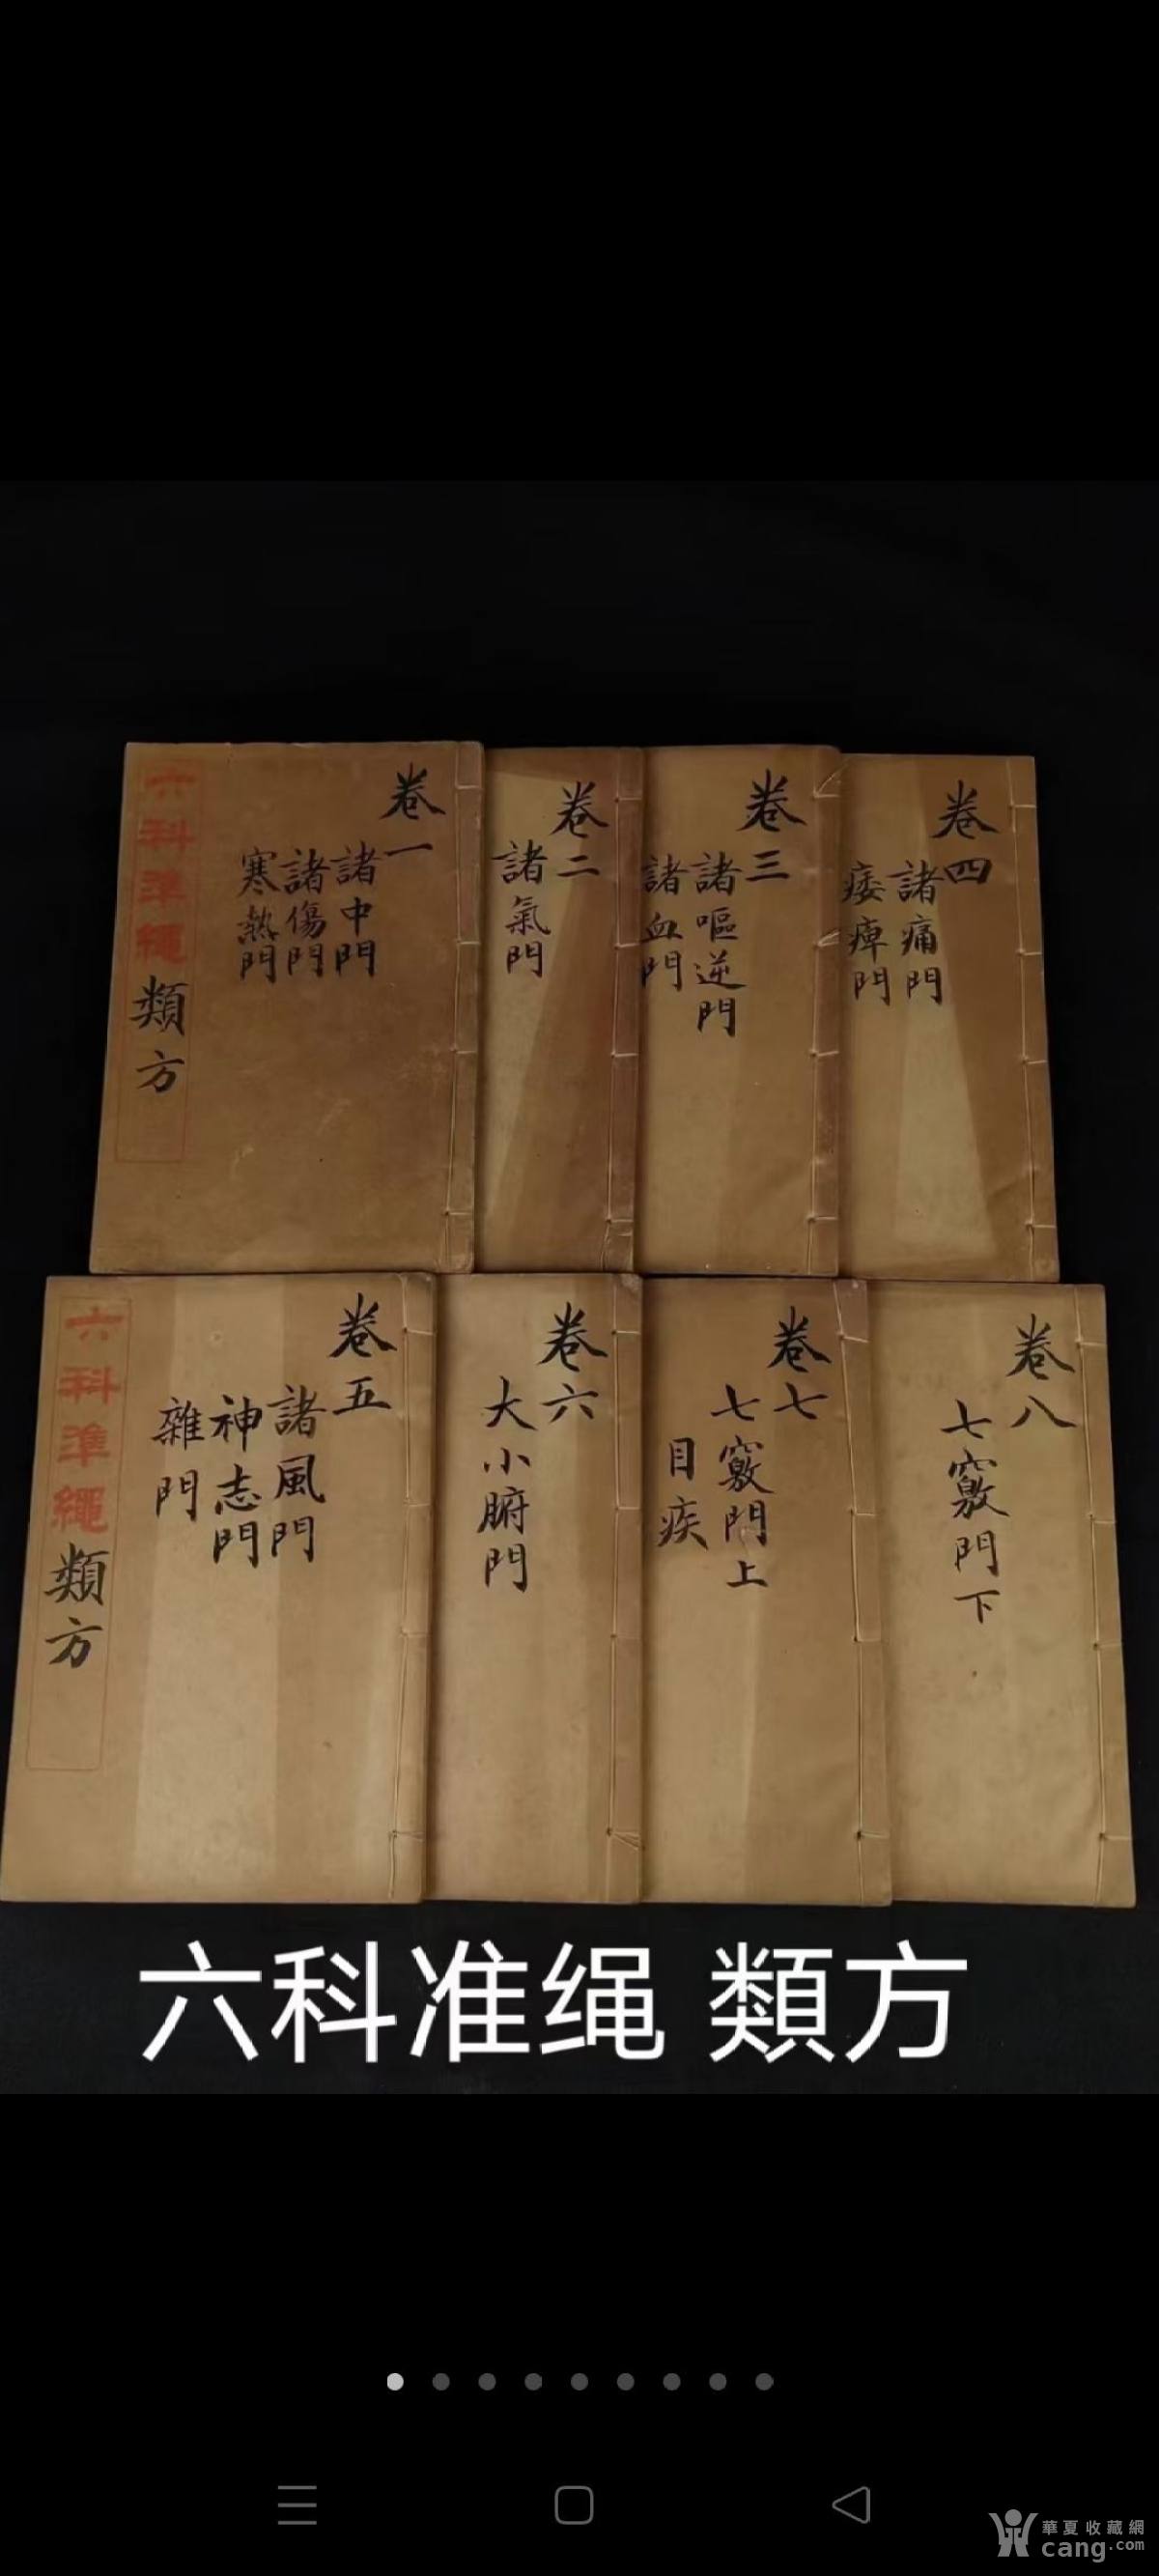 六科準繩類方
卷一
諸中門
諸傷門
寒熱門
卷二
諸氣門
卷三
諸嘔逆門
諸血門
卷四
諸痛門
痿痺門
六科準繩類方
卷五
諸風門
神志門
雜門
卷六
大小腑門
卷七
七竅門上
目疾
卷八
七竅門下
六科准绳 類方
華夏收藏網
cang.com